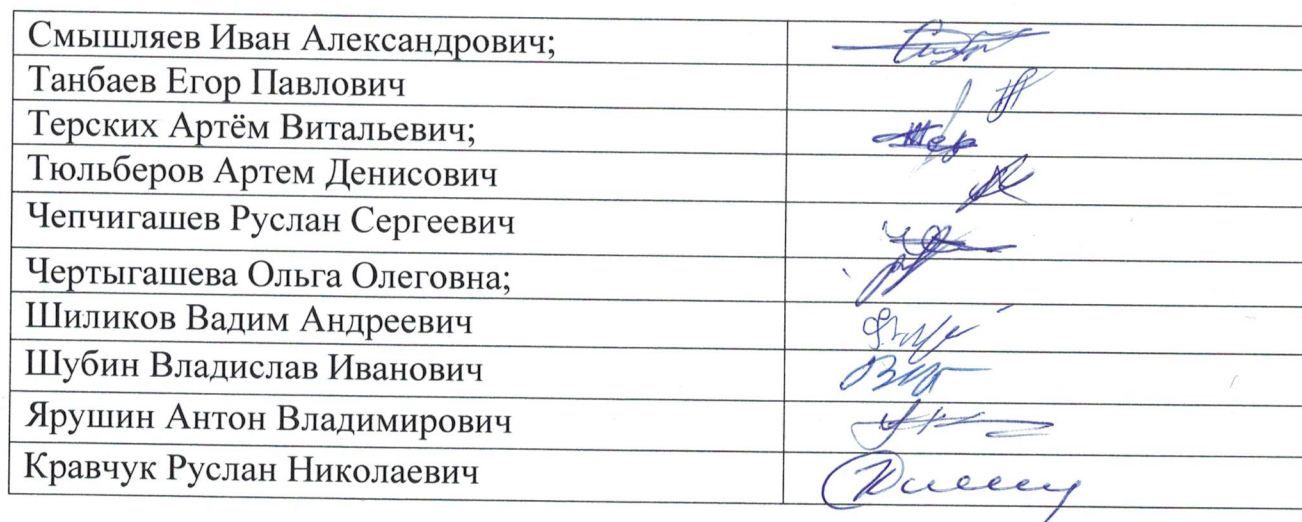 Смышляев Иван Александрович;
Танбаев Егор Павлович
Терских Артём Витальевич;
Тюльберов Артем Денисович
Чепчигашев Руслан Сергеевич
Чертыгашева Ольга Олеговна;
Шиликов Вадим Андреевич
Шубин Владислав Иванович
Ярушин Антон Владимирович
Кравчук Руслан Николаевич